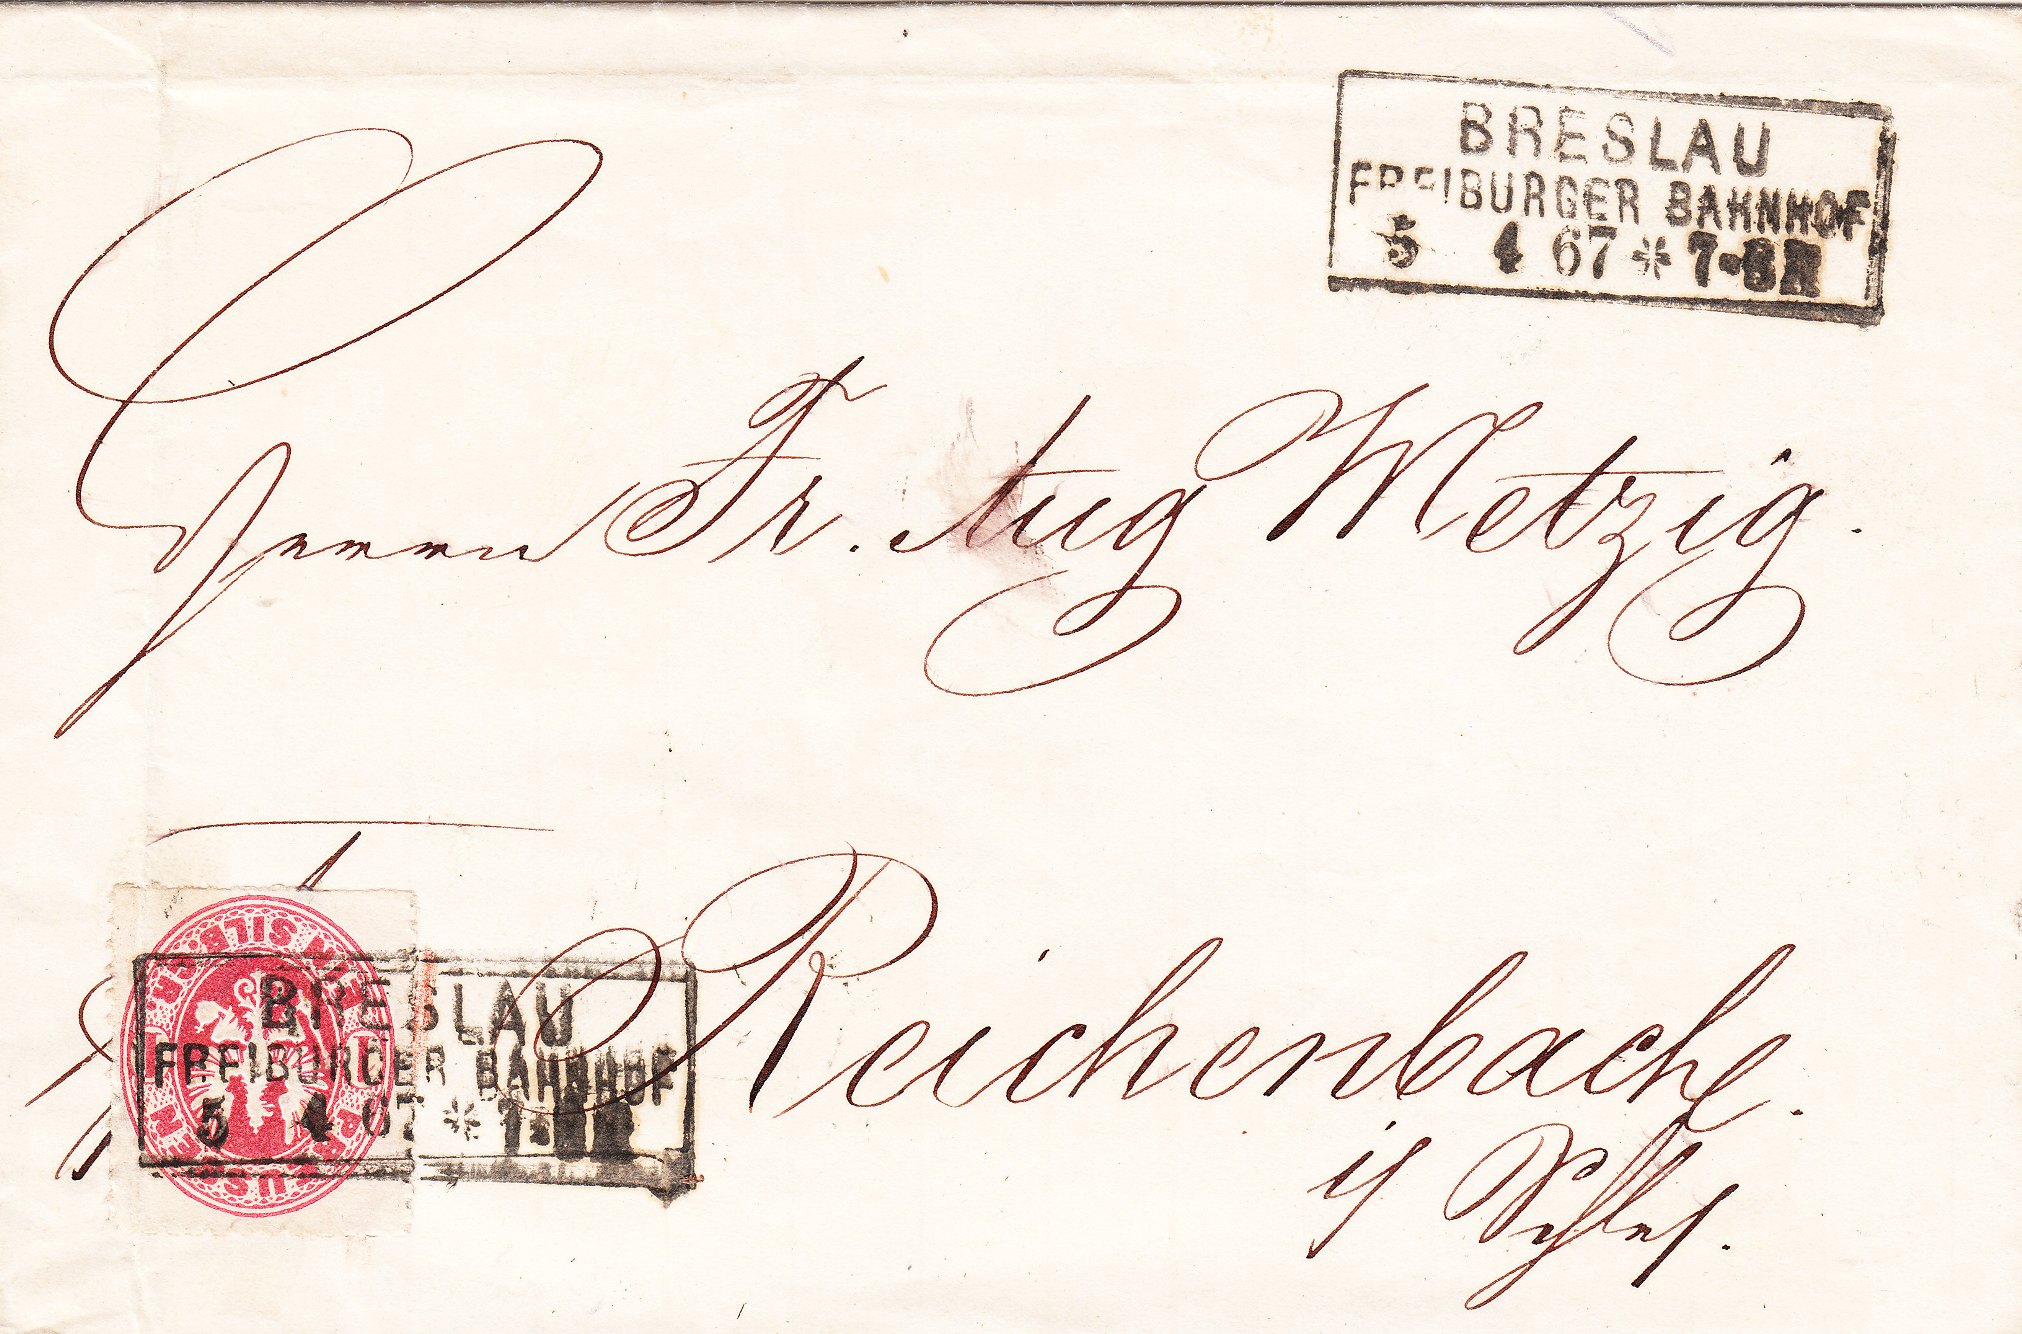 BRESLAU
FREIBURGER BAHNHOF
5 4 67 * 7-8 N
Herrn Fr. Aug Metzig.
Reichenbach.
i/ Schles.
BRESLAU
FREIBURGER BAHNHOF
5 4 67 *
EIN SILB. GR.
PREUSSEN